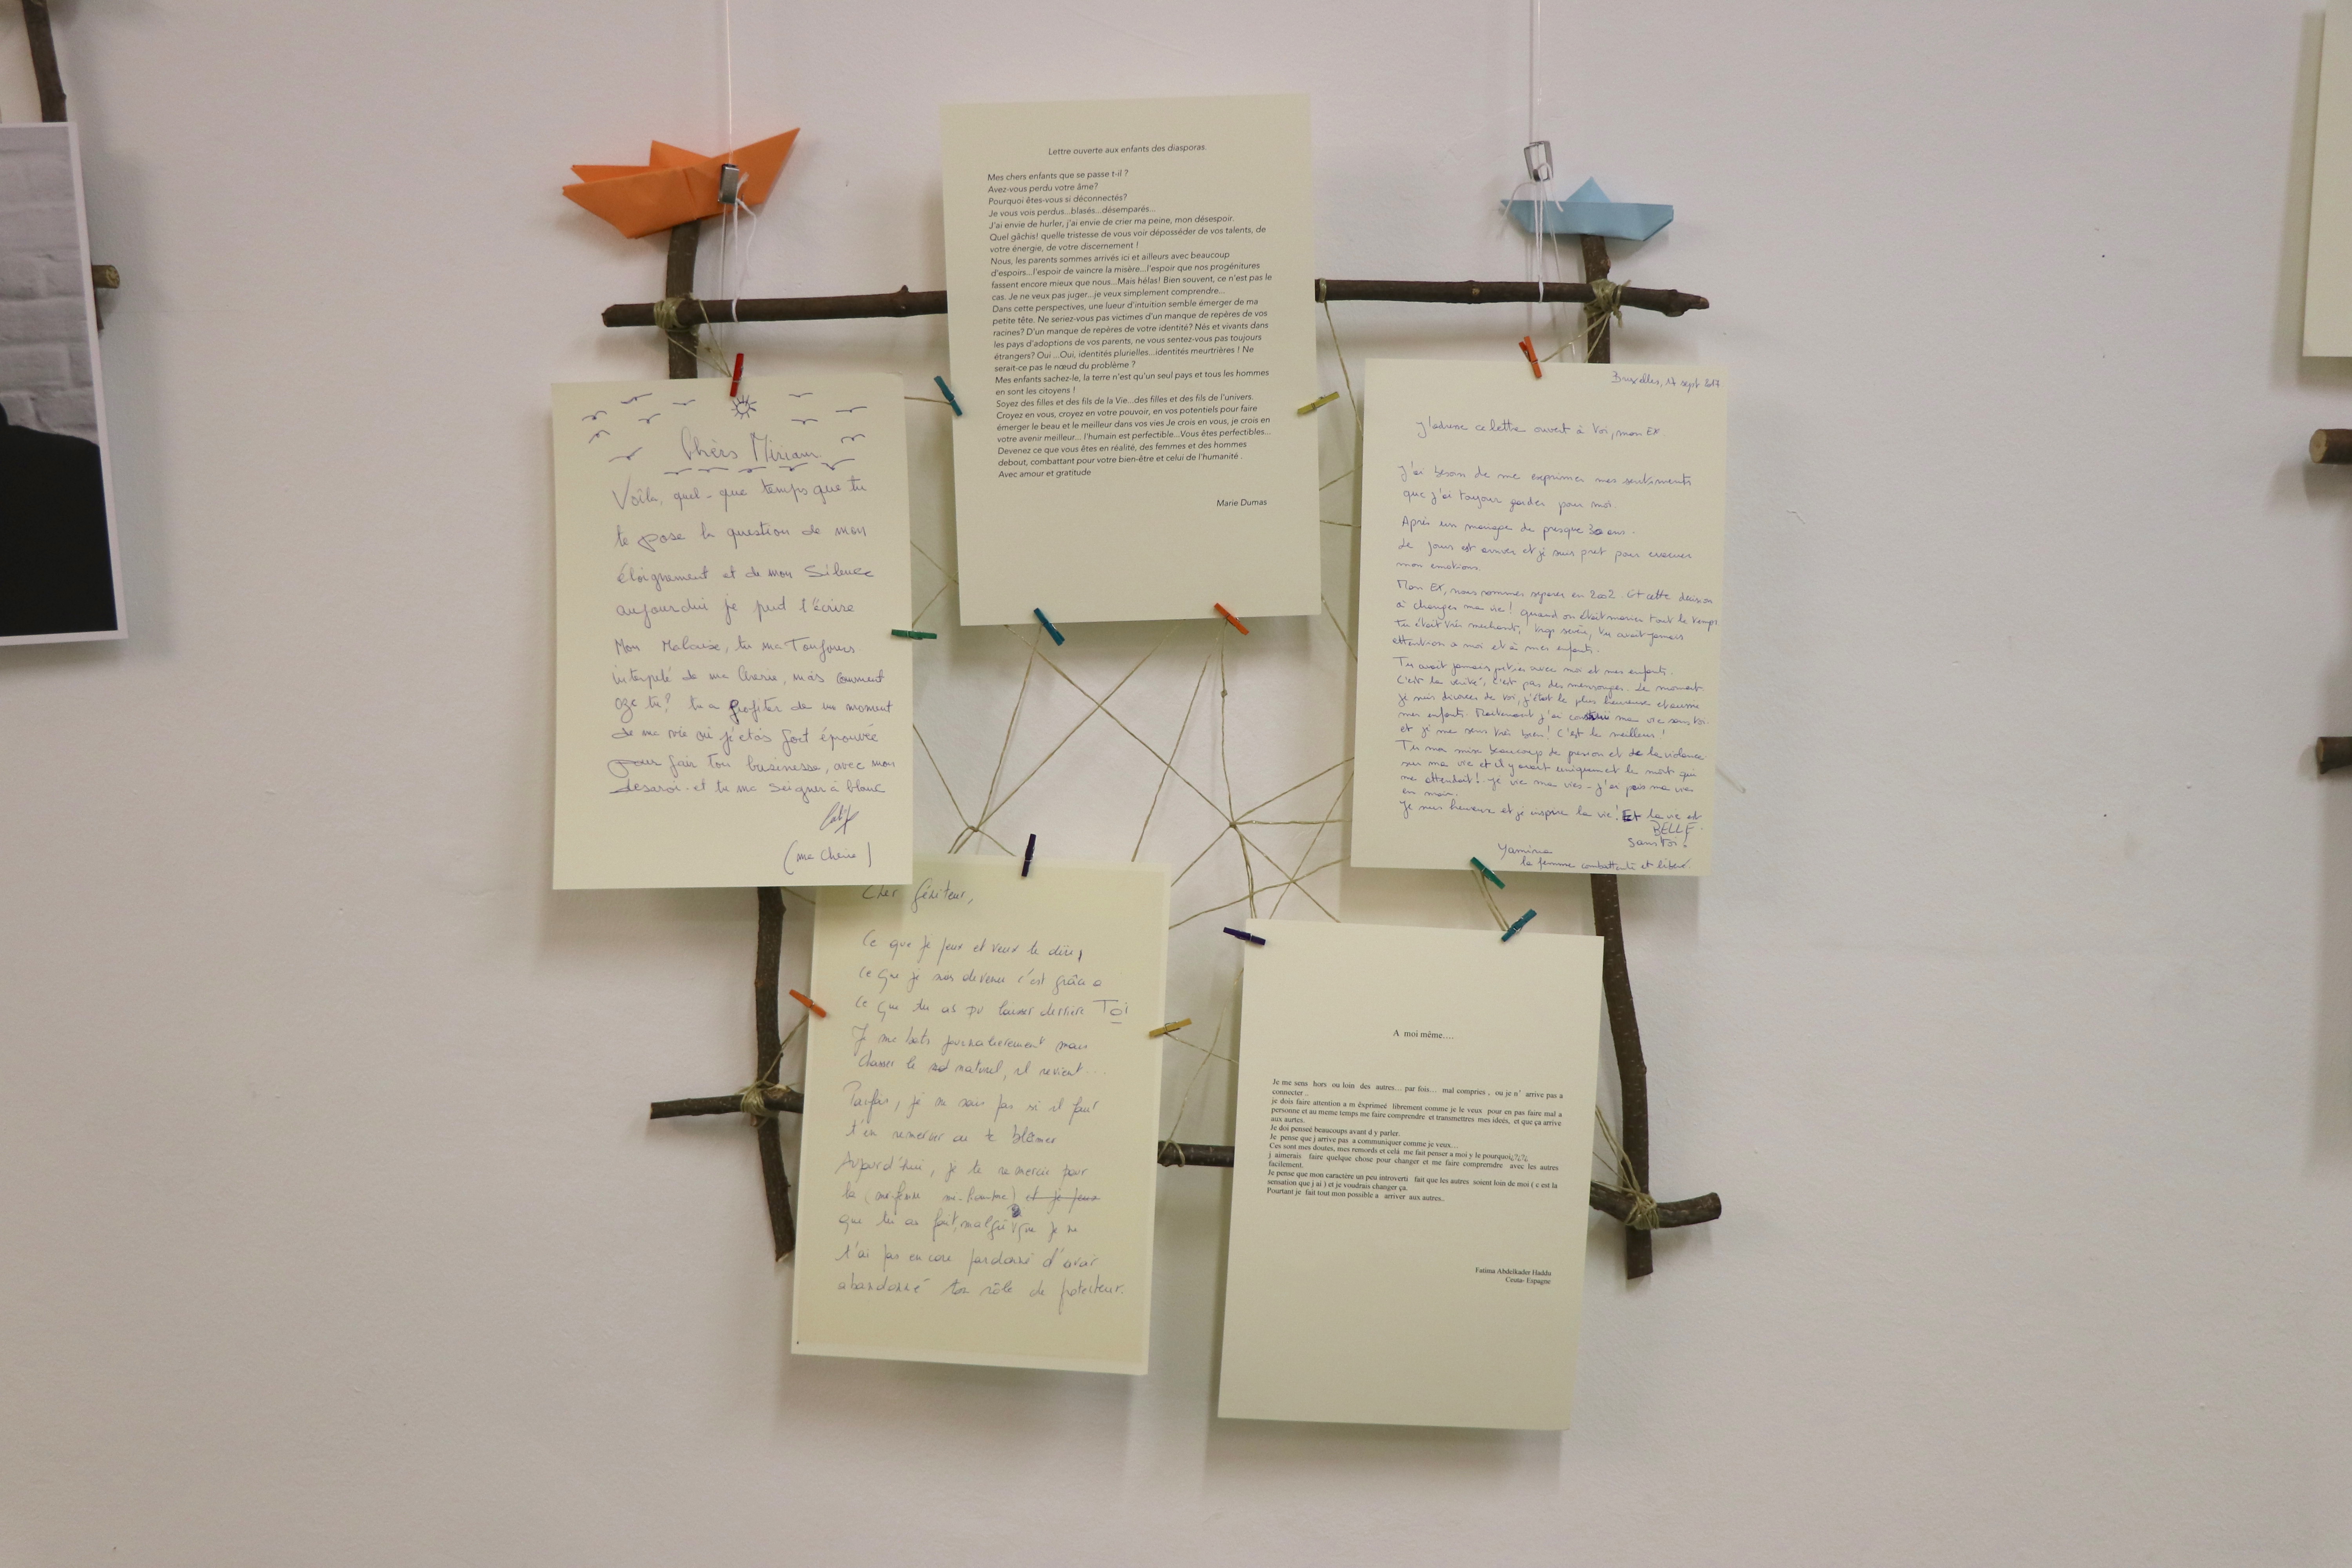 Lettre ouverte aux enfants des diasporas.
Mes chers enfants que se passe t-il ?
Avez-vous perdu votre âme?
Pourquoi êtes-vous si déconnectés?
Je vous vois perdus...blasés...désemparés...
J'ai envie de hurler, j'ai envie de crier ma peine, mon désespoir.
Quel gâchis! quelle tristesse de vous voir déposséder de vos talents, de
votre énergie, de votre discernement !
Nous, les parents sommes arrivés ici et ailleurs avec beaucoup
d'espoirs...l'espoir de vaincre la misère...l'espoir que nos progénitures
fassent encore mieux que nous...Mais hélas! Bien souvent, ce n'est pas le
cas. Je ne veux pas juger...je veux simplement comprendre...
Dans cette perspectives, une lueur d'intuition semble émerger de ma
petite tête. Ne seriez-vous pas victimes d'un manque de repères de vos
racines? D'un manque de repères de votre identité? Nés et vivants dans
les pays d'adoptions de vos parents, ne vous sentez-vous pas toujours
étrangers? Oui ...Oui, identités plurielles...identités meurtrières ! Ne
serait-ce pas le nœud du problème ?
Mes enfants sachez-le, la terre n'est qu'un seul pays et tous les hommes
en sont les citoyens !
Soyez des filles et des fils de la Vie...des filles et des fils de l'univers.
Croyez en vous, croyez en votre pouvoir, en vos potentiels pour faire
émerger le beau et le meilleur dans vos vies Je crois en vous, je crois en
votre avenir meilleur... l'humain est perfectible...Vous êtes perfectibles...
Devenez ce que vous êtes en réalité, des femmes et des hommes
debout, combattant pour votre bien-être et celui de l'humanité .
Avec amour et gratitude
Marie Dumas
Chèrs Miriam
Voilà, quel-que temps que tu
te pose la question de mon
éloignement et de mon Silence
aujourdui je peut l'écrire
Mon Malaise, tu ma Toujours
interpelé de ma Cherie, mais comment
oze tu? tu a profiter de un moment
de ma vie où j'etais fort éprouvée
pour fair ton businesse, avec mon
desaroi. et tu ma seigner à blanc
(ma Cherie)
Bruxelles, 17 sept 2017
J'adresse ce lettre ouvert à toi, mon Ex
J'ai besoin de me exprimer mes sentiments
que j'ai toujour garder pour moi.
Après un mariage de presque 30 ans.
Le jour est arriver et je suis pret pour
mon emotions.
Mon Ex, nous sommes separer en 2002. Et cette décision
à changer ma vie! Quand on était marier tout le temps
tu était très mechant, trop sevère, tu avait jamais
attention a moi et à mes enfants.
Tu avait jamais avec moi et mes enfants.
C'est la verité, c'est pas des mensonges. Le moment
je suis divorcer de toi, j'étais le plus heureuse et aussi
mes enfants. Maitenant j'ai construi ma vie sans toi.
et je me sens très bien! C'est le meilleur!
Tu ma mise beaucoup de presion et de la violence
sur ma vie et il y avait uniquement la mort qui
me attendait! Je vie ma vies - j'ai pris ma vies
en main.
Je suis heureuse et je inspire la vie! Et la vie est
BELLE
sans toi!
Yamina
la femme combattante et libéré
Cher Géniteur,
Ce que je peux et veux te dire,
ce que je suis devenu c'est grâce a
ce que tu as pu laisser derrière Toi
Je me bats journalierement mais
Chasser le naturel, il revient...
Parfois, je ne sais pas si il faut
t'en remercier ou te blâmer
Aujourd'hui, je te remercie pour
la (mi-femme mi-homme) et je peux
que tu as fait, malgré que je ne
t'ai pas encore pardonné d'avoir
abandonné ton rôle de protecteur.
A moi même....
Je me sens hors ou loin des autres... par fois... mal compries , ou je n' arrive pas a
connecter ..
je dois faire attention a m éxprimeé librement comme je le veux pour en pas faire mal a
personne et au meme temps me faire comprendre et transmettres mes ideés, et que ça arrive
aux aurtes.
Je doi penseé beaucoups avant d y parler.
Je pense que j arrive pas a communiquer comme je veux...
Ces sont mes doutes, mes remords et celà me fait penser a moi y le pourquoi¿?¿?¿
j aimerais faire quelque chose pour changer et me faire comprendre avec les autres
facilement.
Je pense que mon caractère un peu introverti fait que les autres soient loin de moi ( c est la
sensation que j ai ) et je voudrais changer ça.
Pourtant je fait tout mon possible a arriver aux autres..
Fatima Abdelkader Haddu
Ceuta- Espagne